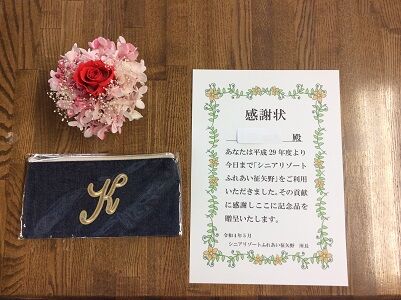 K
感謝状
殿
あなたは平成29年度より
今日まで「シニアリゾート
ふれあい征矢野」をご利用
いただきました。その貢献
に感謝しここに記念品を
贈呈いたします。
令和4年5月
シニアリゾートふれあい征矢野 所長